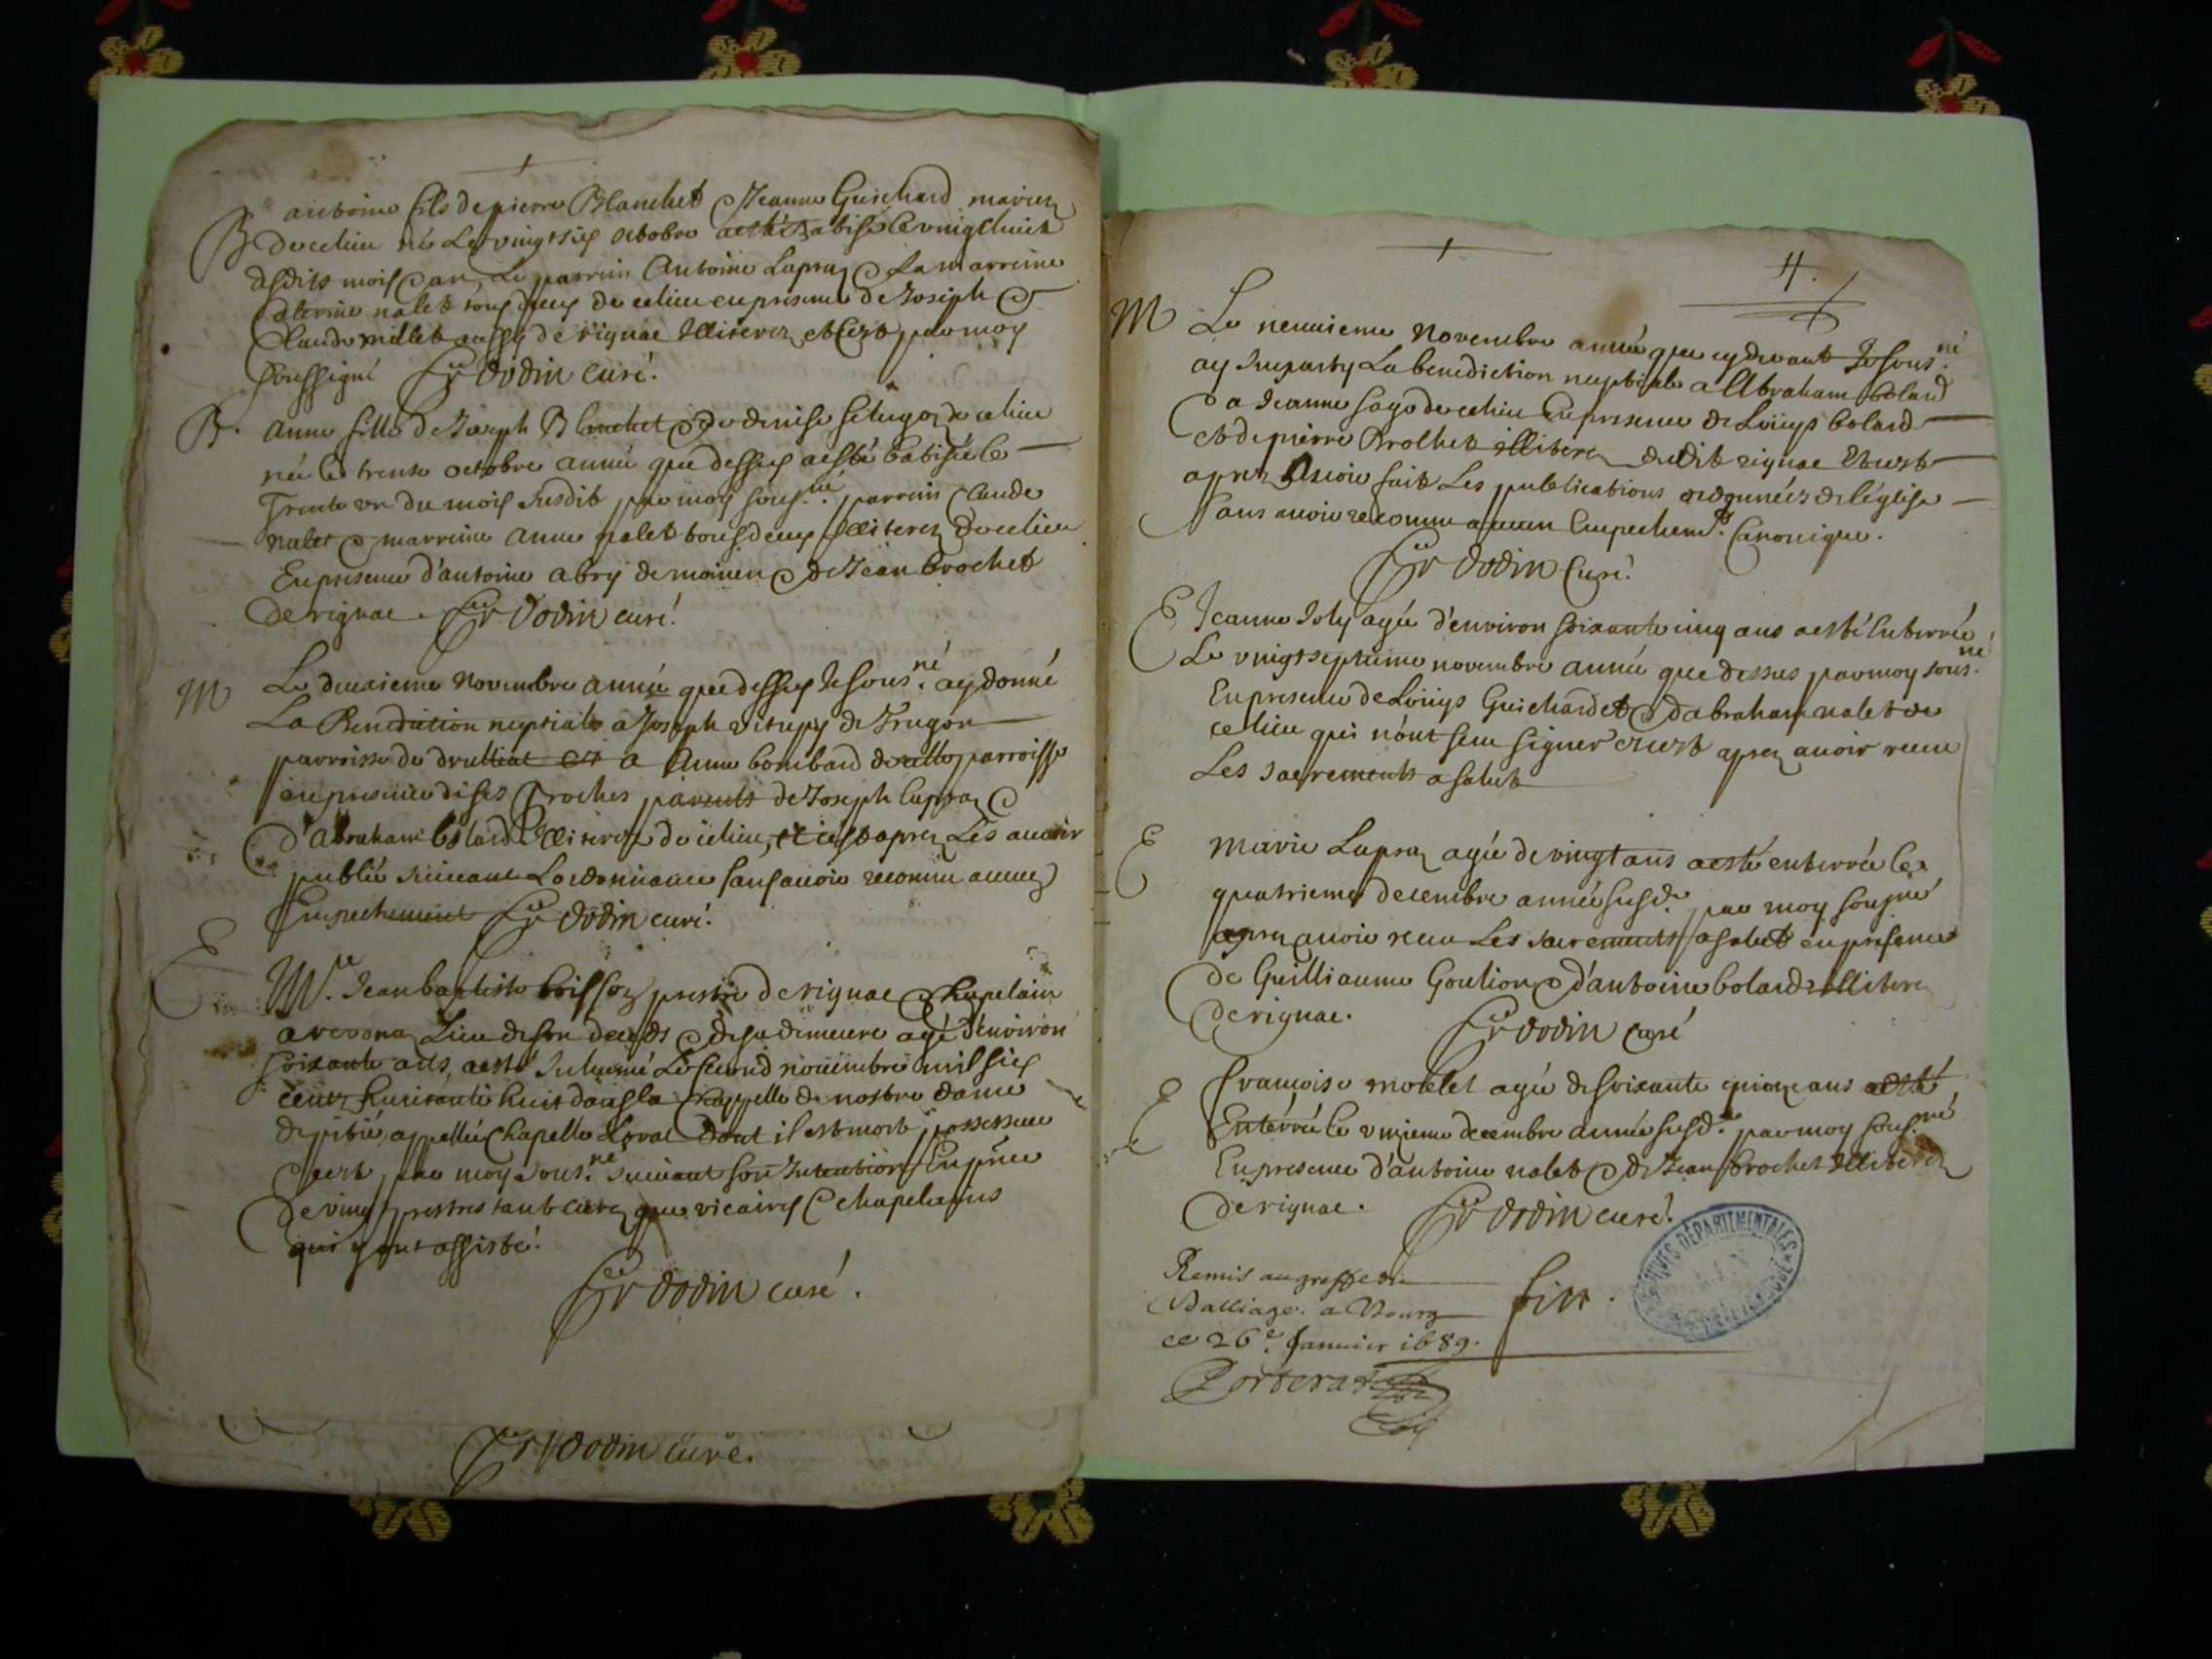 B antoine fils de pierre Blanchet & Jeanne Guichard mariez
de ce lieu né le vingt six octobre a esté batisé le vingt huict
desdits mois & an, le parrin Antoine Lapraz & la marreine
nalet tous deux de ce lieu en presence de Joseph &
Claude millet aussy de rignac illiterez et c'est par moy
soussigné Dodin curé.
B. Anne fille de Joseph Blanchet & de denise de ce lieu
née le trente octobre année que dessus a esté batisée le
Trente un du mois susdit par moy sous.né parrein Claude
nalet & marreine anne nalet tous deux illiterez de ce lieu
En presence d'antoine abry de & de Jean brochet
de rignac. Dodin curé.
M Le deuxieme Novembre année que dessus Je sous.né ay donné
La Benediction nuptiale a Joseph de Trugon
parroisse de druilliat et a Anne bombard de parroisse
en presence de ses proches parents de Joseph lapraz &
d'Abraham bolard illiterez de ce lieu, et c'est apres les avoir
publié suivant L'ordonnance sans avoir reconnu aucuns
Empechement Dodin curé.
E M.re Jean baptiste prestre de rignac & chapelain
a Lieu de son decéds & de sa demeure agé d'environ
soixante ans, a esté Inhumé Le second novembre mil six
cents huictante huit dans la chappelle de nostre dame
de pitié, appellée Chapelle dont il est mort possesseur
& c'est par moy sous.né suivant son Intention En pñce
de vingt prestres tant curez que vicaires & chapelains
qui y ont assisté.
Dodin curé.
Dodin curé.
4.
M Le neuvieme Novembre année que cy devant Je sous.né
ay Imparty La benediction nuptiale a Abraham bolard
& a Jeanne de ce lieu En presence de Loüys bolard
et de pierre Brochet illiterez dudit rignac & c'est
aprez Avoir fait Les publications ordonnées de l'église
sans avoir reconnu aucun Empechem.t Canonique.
Dodin Curé.
E Jeanne Joly agée d'environ soixante cinq ans a esté Enterrée
Le vingt septieme novembre année que dessus par moy sous.né
En presence de Loüys Guichard & d'abraham nalet de
ce lieu qui n'ont sceu signer & c'est aprez avoir receu
Les sacrements a salut
E Marie Lapraz agée de vingt ans a esté enterrée le
quatrieme decembre année susd.e par moy
aprez avoir receu Les sacrements a salut en presence
de Guilliaume Goulion & d'antoine bolard illiterez
de rignac. Dodin Curé
E francoise agée de soixante quinze ans a esté
Enterrée le unzieme decembre année susd.e par moy sous.né
En presence d'antoine nalet & de Jean brochet Illiterez
de rignac. Dodin curé.
Remis au greffe du
Balliage a Bourg
ce 26.e Janvier 1689.
fin.
ARCHIVES DÉPARTEMENTALES